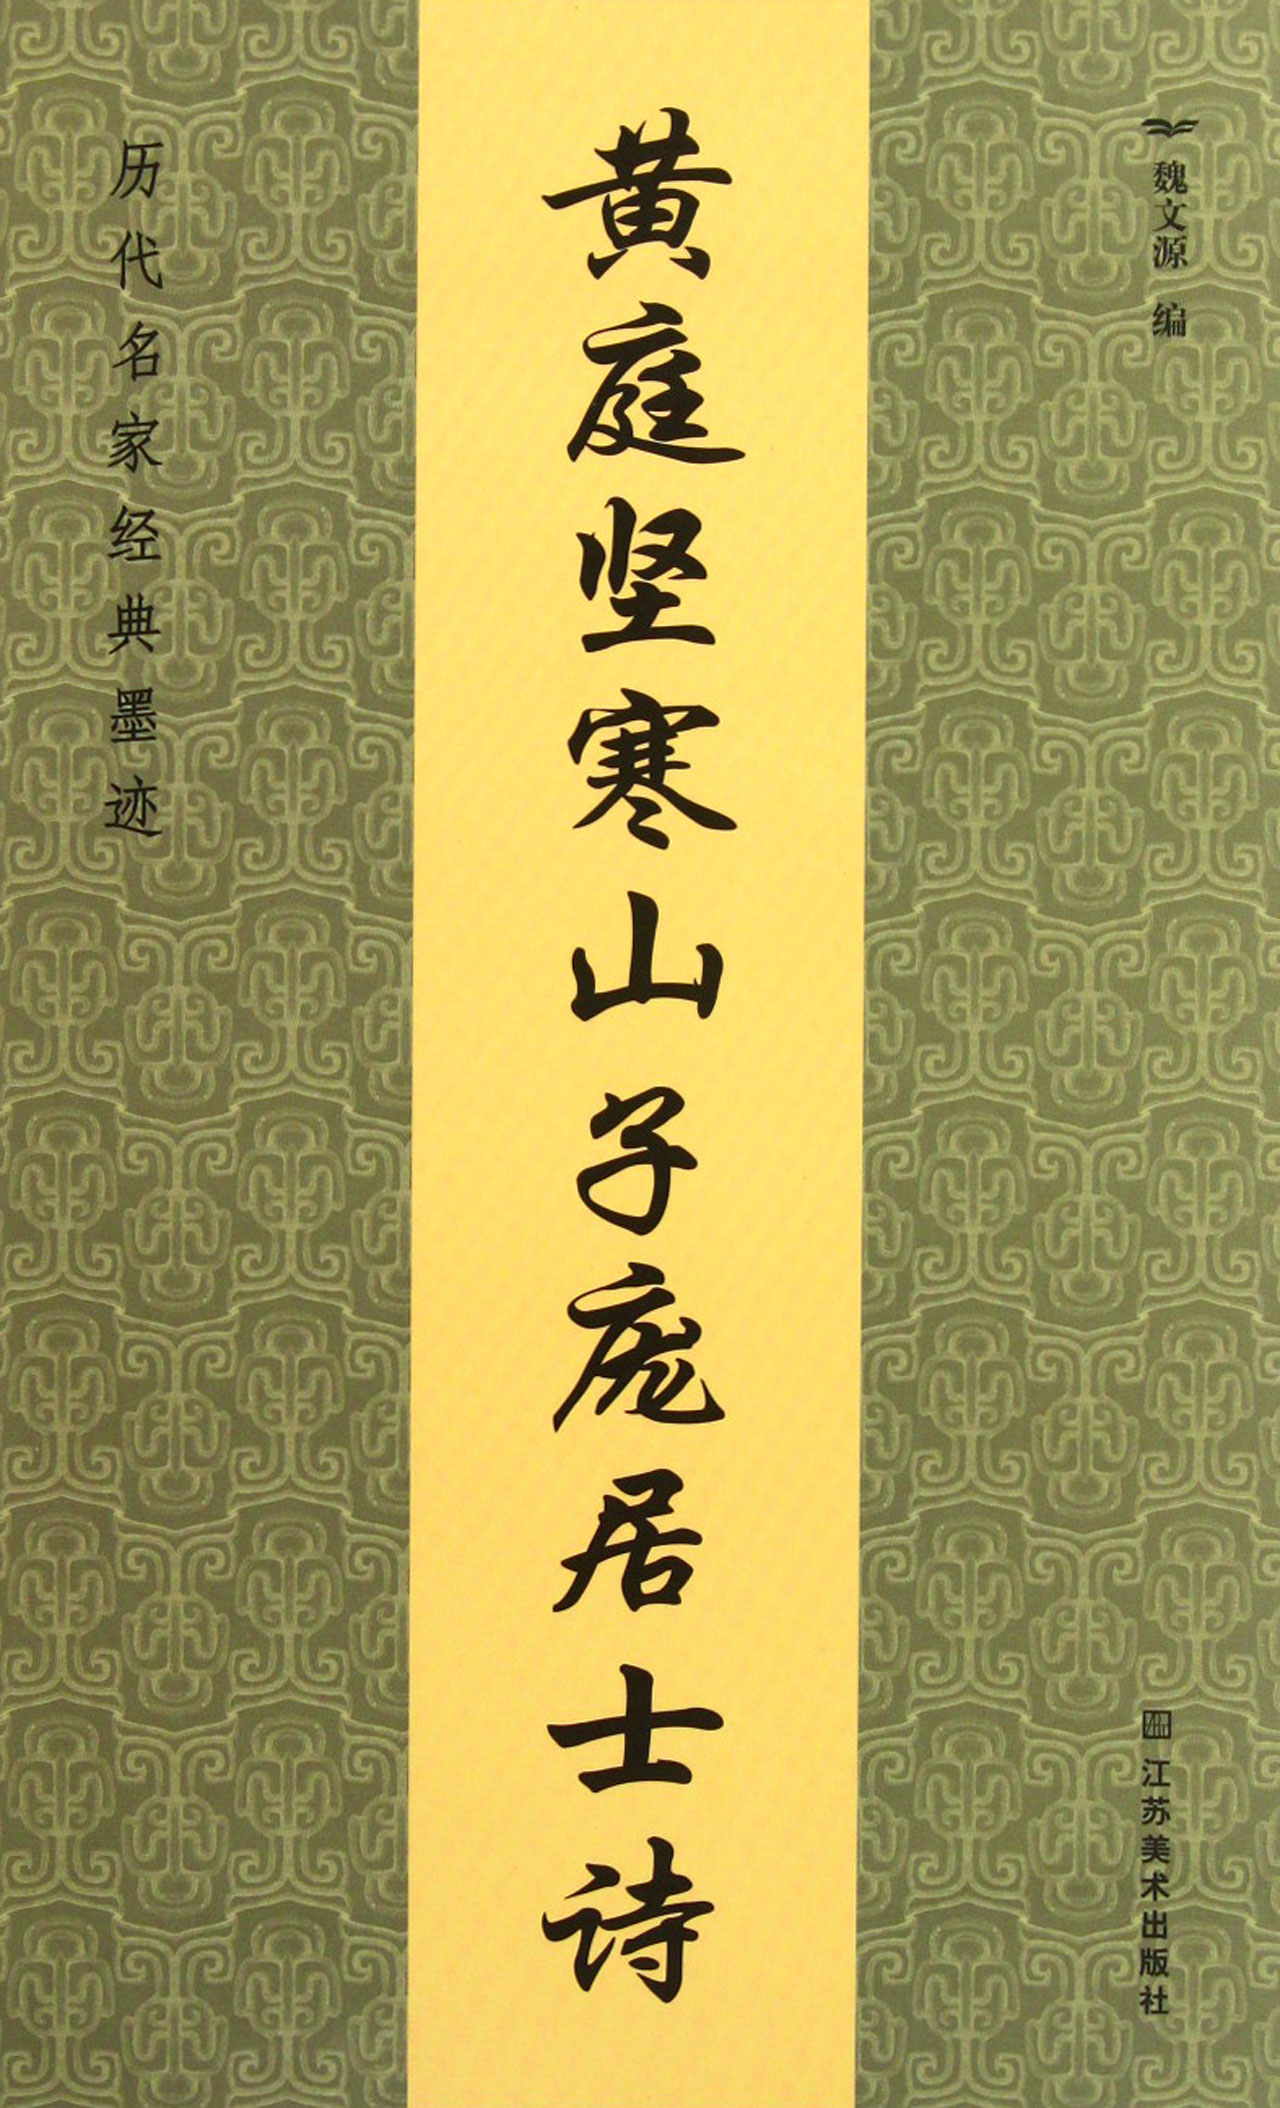 历代名家经典墨迹
黄庭坚寒山子庞居士诗
魏文源 编
江苏美术出版社